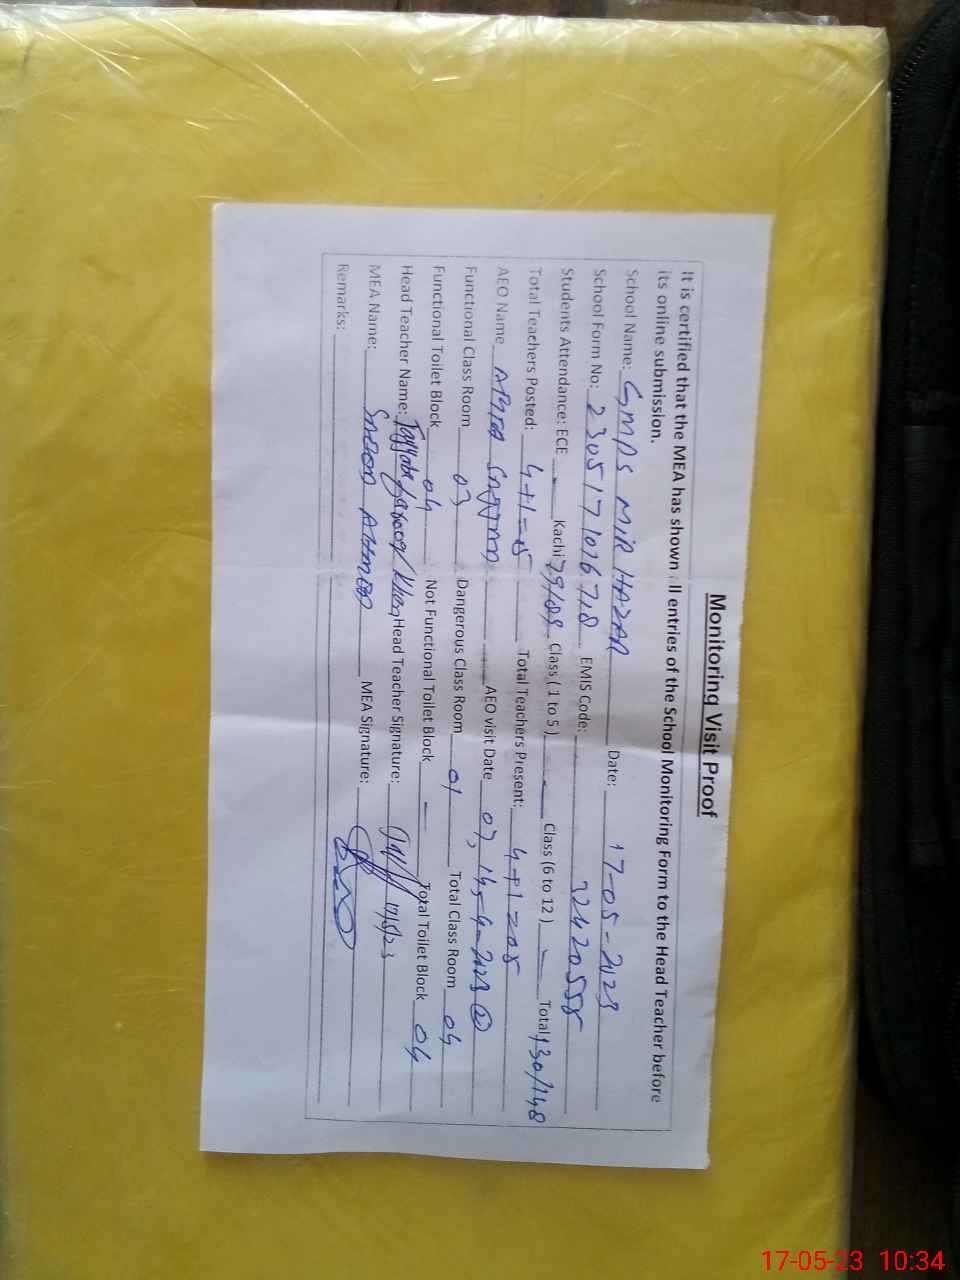 Monitoring Visit Proof
It is certified that the MEA has shown all entries of the School Monitoring Form to the Head Teacher before
its online submission.
School Name: GMPS MIR HAZAR Date: 17-05-2023
School Form No: 2305171016718 EMIS Code: 32420558
Students Attendance: ECE - Kachi 79/89 Class ( 1 to 5 ) - Class (6 to 12 ) - Total 130/148
Total Teachers Posted: 4+1=05 Total Teachers Present: 4+1=05
AEO Name AEO visit Date 07, 14-4-2023 (2)
Functional Class Room 03 Dangerous Class Room 01 Total Class Room 04
Functional Toilet Block 04 Not Functional Toilet Block - Total Toilet Block 04
Head Teacher Name: Head Teacher Signature: 17/5/23
MEA Name: AHMED MEA Signature:
Remarks:
17-05-23 10:34